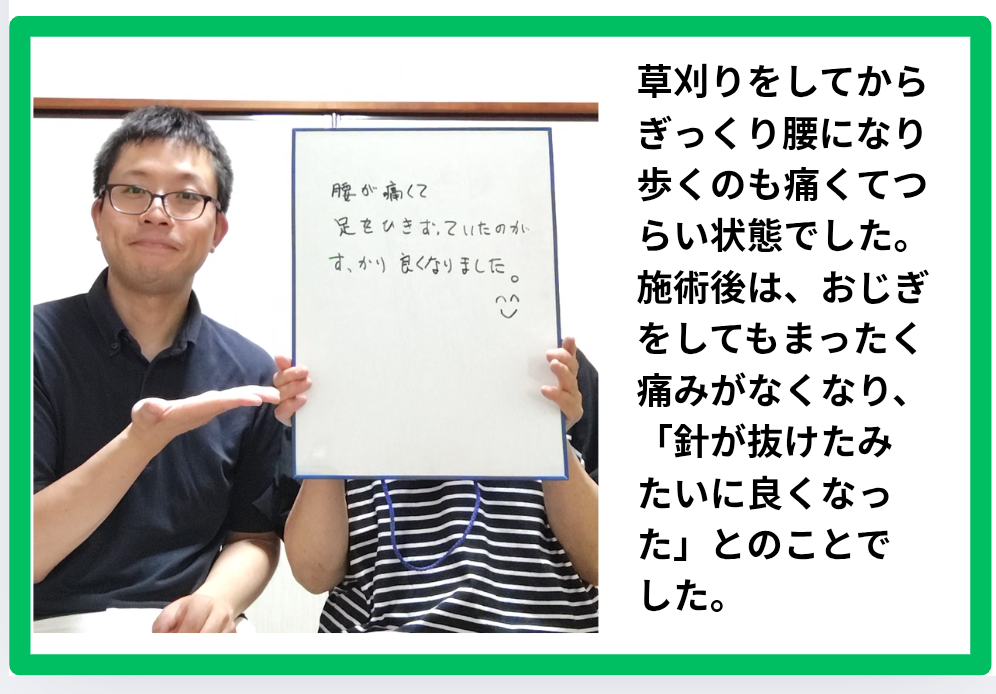 腰が痛くて
足をひきずっていたのが
すっかり良くなりました。
草刈りをしてから
ぎっくり腰になり
歩くのも痛くてつ
らい状態でした。
施術後は、おじぎ
をしてもまったく
痛みがなくなり、
「針が抜けたみ
たいに良くなっ
た」とのことで
した。